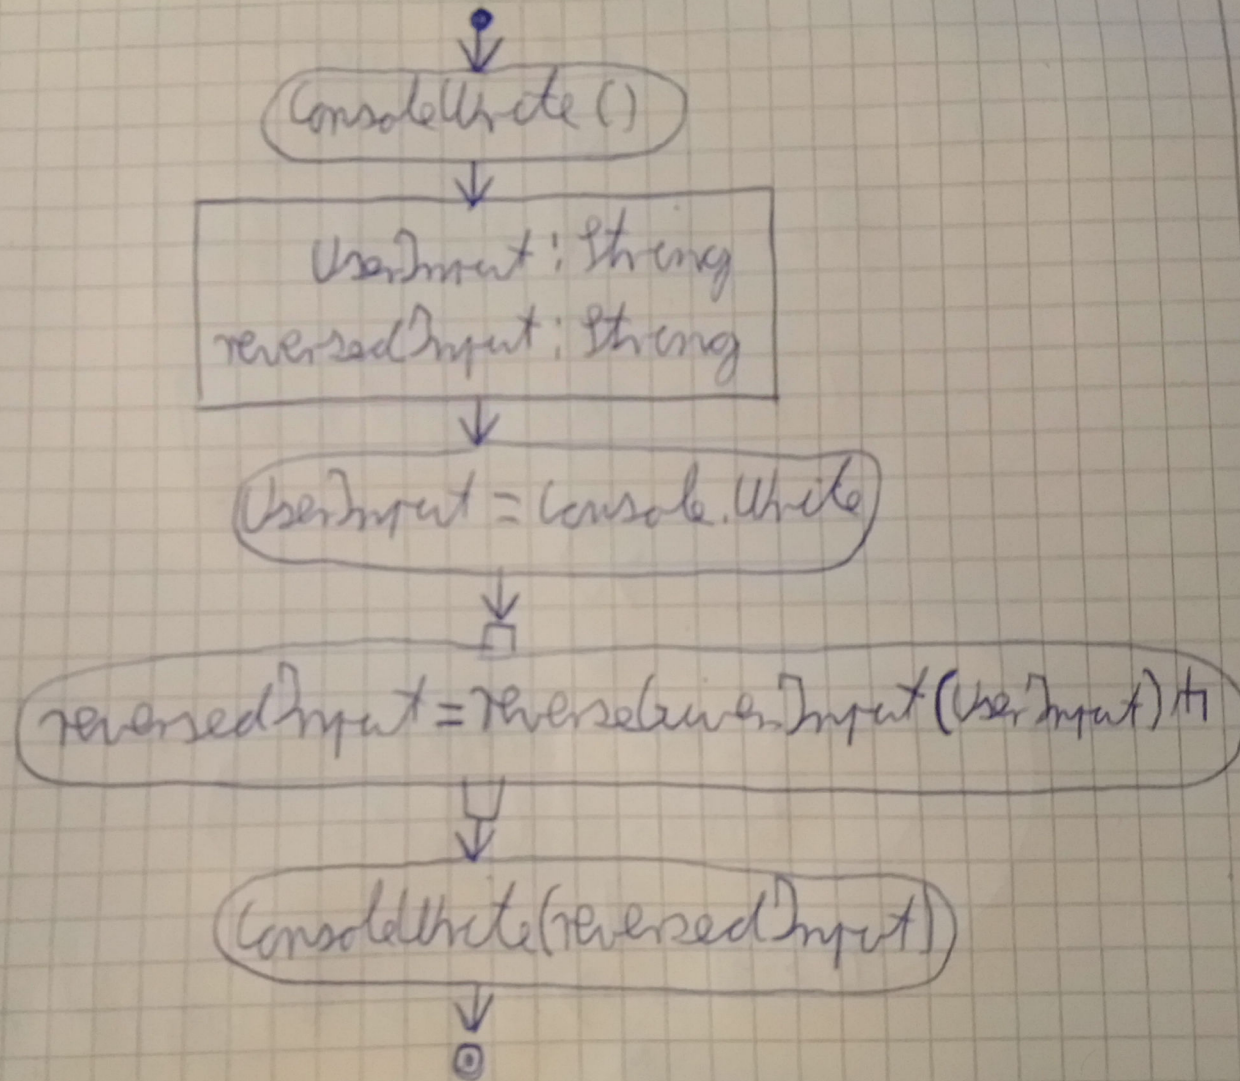 ConsoleWrite()
UserInput : String
reversedInput : String
UserInput = Console.Write
reversedInput = reverseGivenInput(UserInput)
ConsoleWrite(reversedInput)